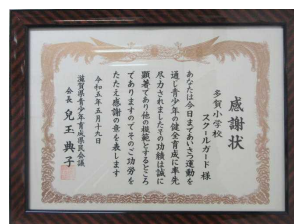 感謝状
多賀小学校
スクールガード 様
あなたは今日まであいさつ運動を
通じ青少年の健全育成に率先
尽力されましたその功績は誠に
顕著であり他の模範とするところ
でありますのでそのご功労を
たたえ感謝の意を表します
令和五年五月十九日
滋賀県青少年育成県民会議
会長 兒玉典子